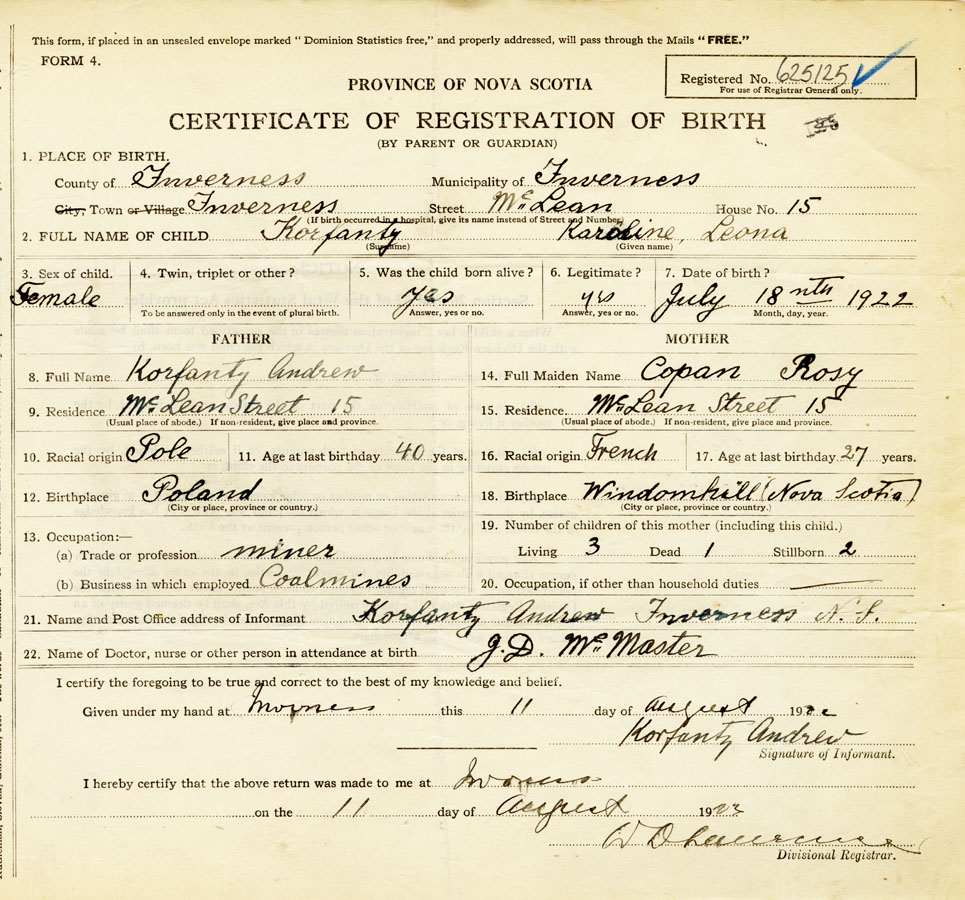 This form, if placed in an unsealed envelope marked "Dominion Statistics free," and properly addressed, will pass through the Mails "FREE."
FORM 4.
Registered No. 625125
For use of Registrar General only.
PROVINCE OF NOVA SCOTIA
CERTIFICATE OF REGISTRATION OF BIRTH
(BY PARENT OR GUARDIAN)
1. PLACE OF BIRTH.
County of Inverness Municipality of Inverness
City, Town or Village Inverness Street McLean House No. 15
(If birth occurred in a hospital, give its name instead of Street and Number)
2. FULL NAME OF CHILD Korfanty Karoline, Leona
(Surname) (Given name)
3. Sex of child. 4. Twin, triplet or other? 5. Was the child born alive? 6. Legitimate? 7. Date of birth?
Female yes yes July 18 nth 1922
To be answered only in the event of plural birth. Answer, yes or no. Answer, yes or no. Month, day, year.
FATHER MOTHER
8. Full Name Korfanty Andrew 14. Full Maiden Name Copan Rosy
9. Residence McLean Street 15 15. Residence McLean Street 15
(Usual place of abode.) If non-resident, give place and province. (Usual place of abode.) If non-resident, give place and province.
10. Racial origin Pole 11. Age at last birthday 40 years. 16. Racial origin French 17. Age at last birthday 27 years.
12. Birthplace Poland 18. Birthplace Windomhill (Nova Scotia)
(City or place, province or country.) (City or place, province or country.)
13. Occupation:— 19. Number of children of this mother (including this child.)
(a) Trade or profession miner Living 3 Dead 1 Stillborn 2
(b) Business in which employed Coalmines 20. Occupation, if other than household duties
21. Name and Post Office address of Informant Korfanty Andrew Inverness N.S.
22. Name of Doctor, nurse or other person in attendance at birth J.D. McMaster
I certify the foregoing to be true and correct to the best of my knowledge and belief.
Given under my hand at Inverness this 11 day of August 192
Korfanty Andrew
Signature of Informant.
I hereby certify that the above return was made to me at Inverness
on the 11 day of August 1922
Divisional Registrar.